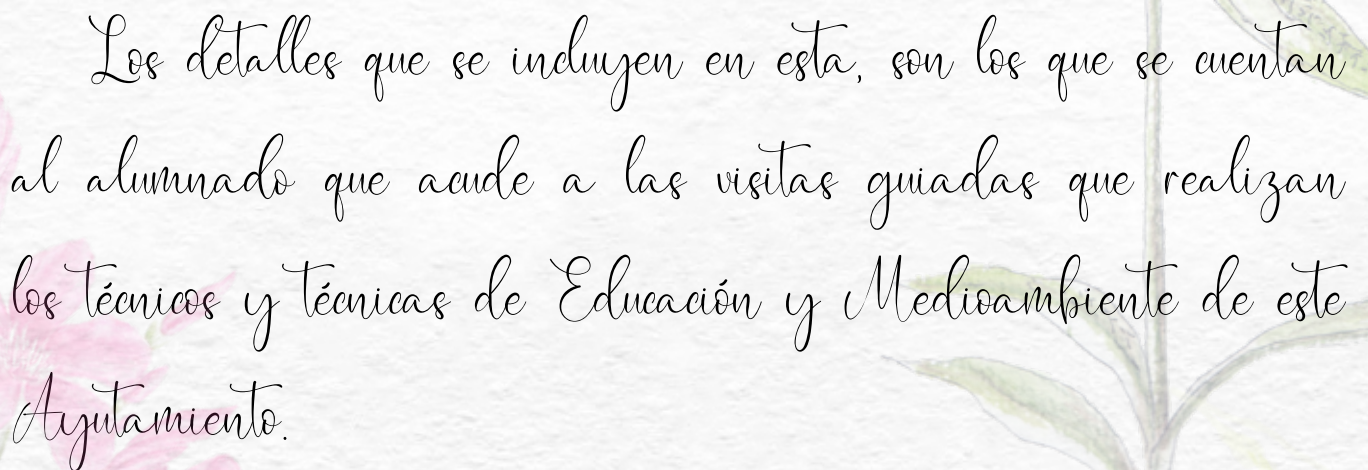 Los detalles que se incluyen en esta, son los que se cuentan
al alumnado que acude a las visitas guiadas que realizan
los técnicos y técnicas de Educación y Medioambiente de este
Ayutamiento.